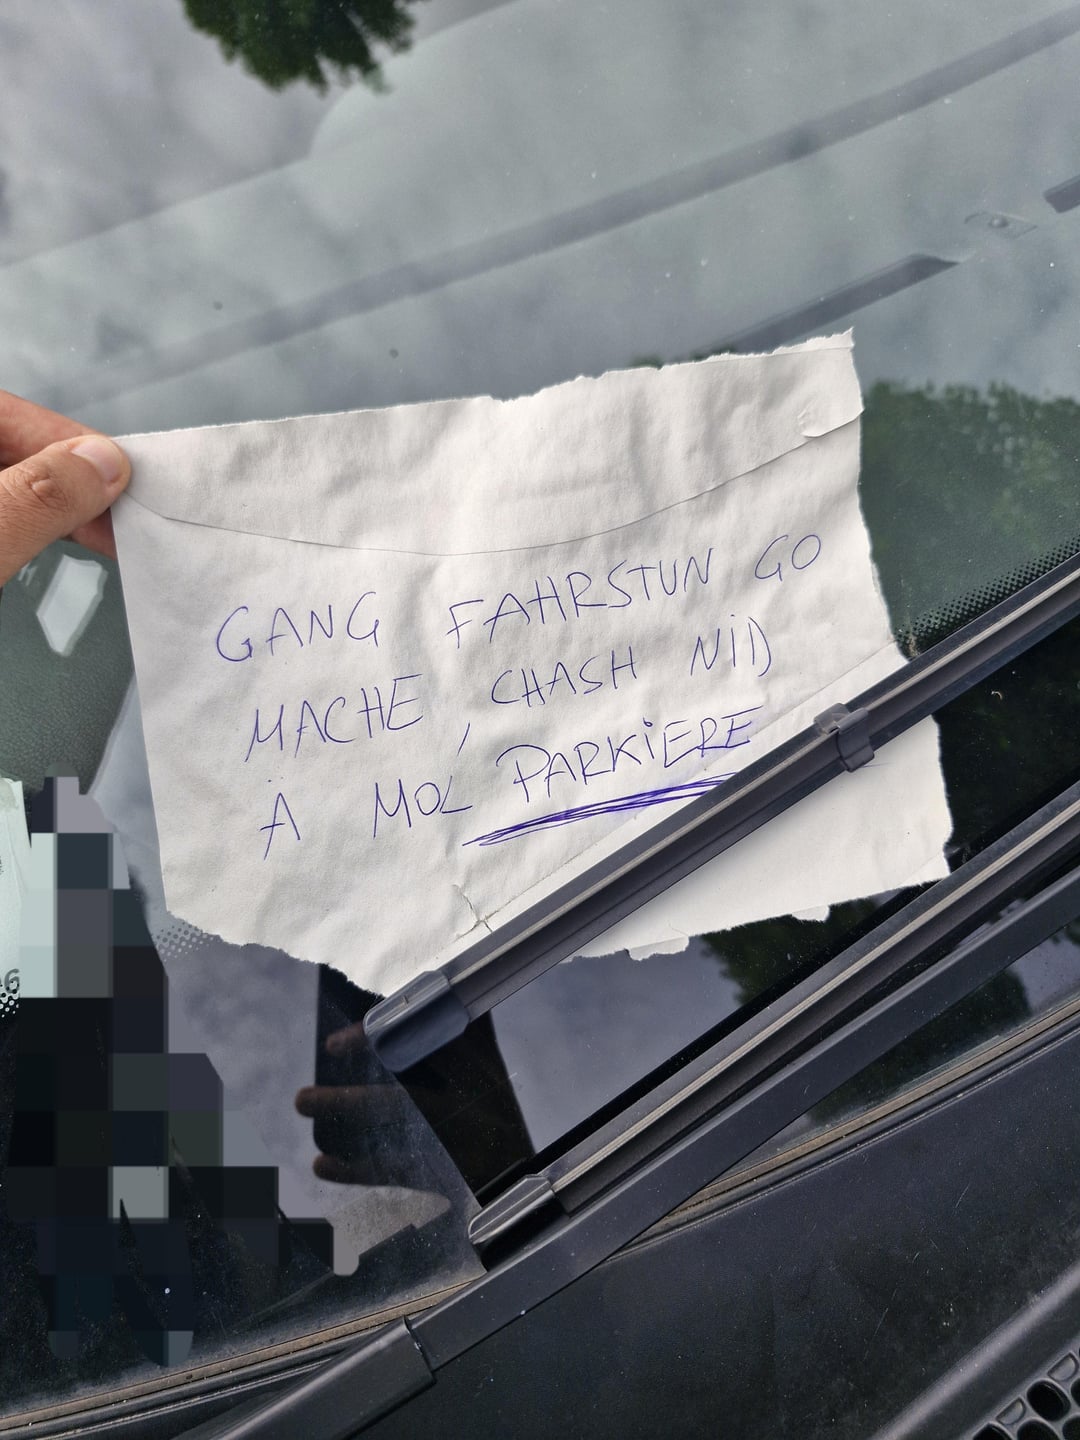 GANG FAHRSTUN GO
MACHE, CHASH NID
Ä MOL PARKIERE